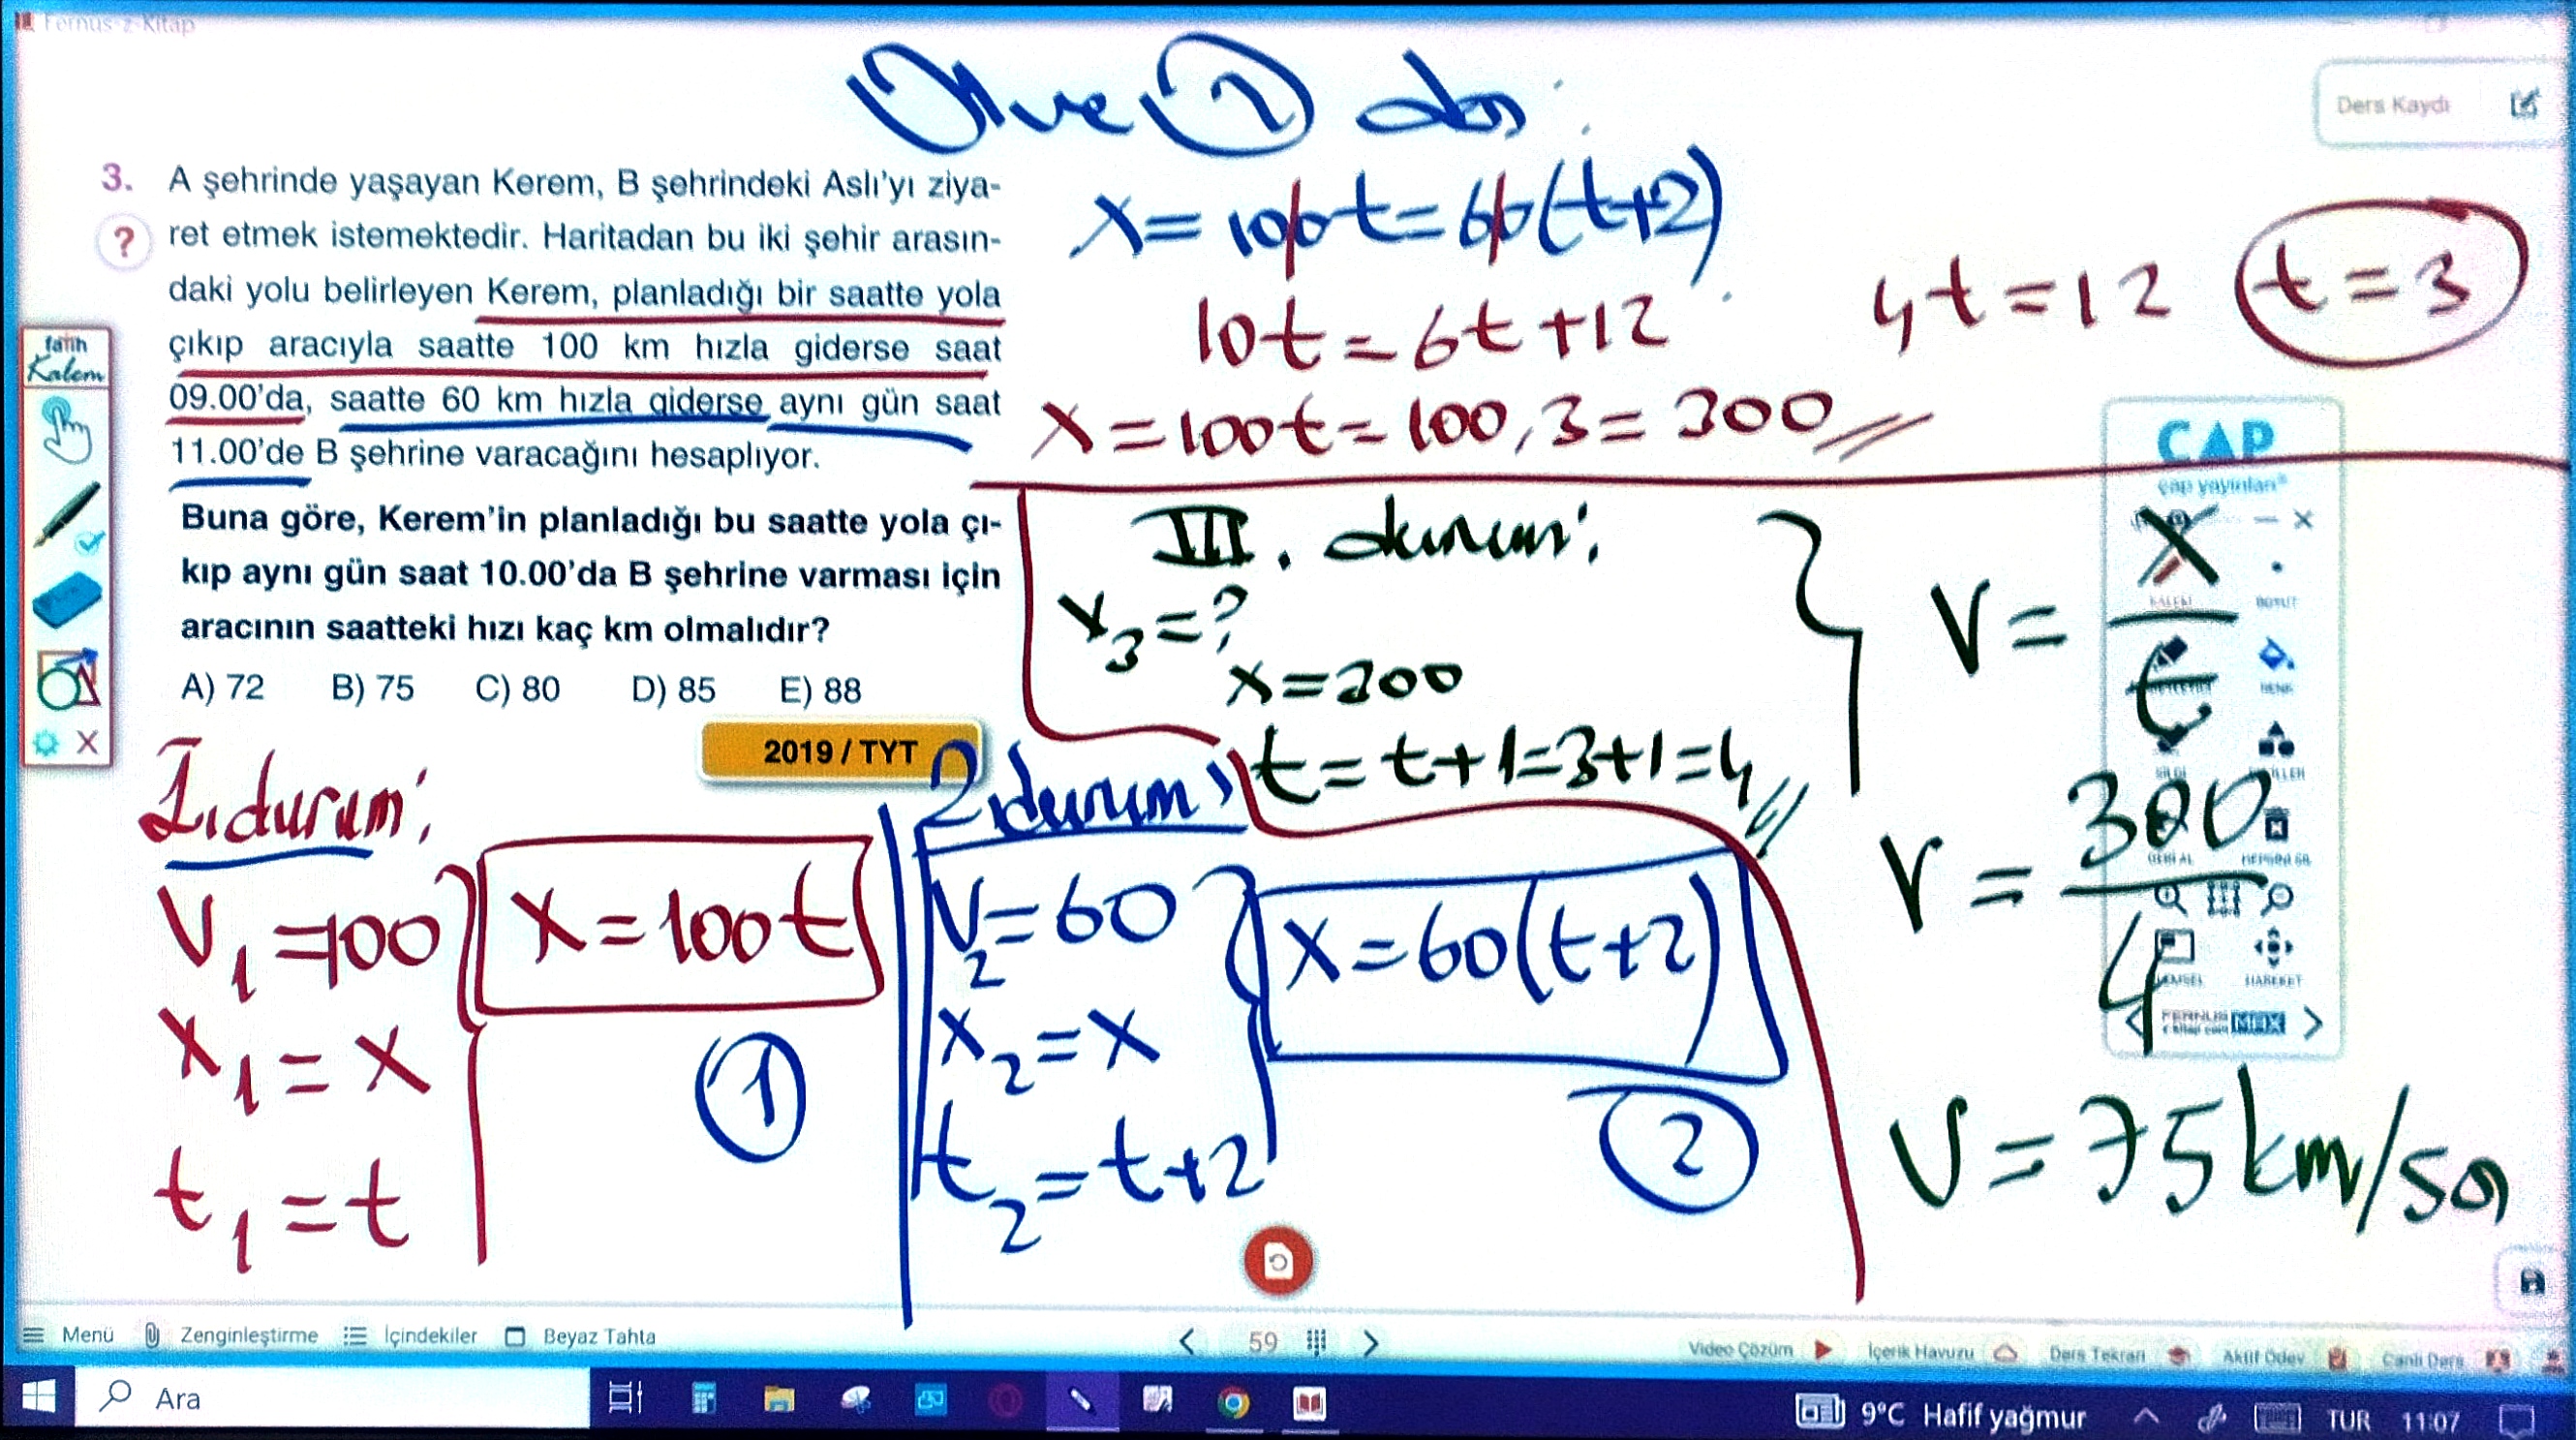 Fernus z-Kitap
Ders Kaydı
① ve ② den:
3. A şehrinde yaşayan Kerem, B şehrindeki Aslı'yı ziya-
? ret etmek istemektedir. Haritadan bu iki şehir arasın-
daki yolu belirleyen Kerem, planladığı bir saatte yola
çıkıp aracıyla saatte 100 km hızla giderse saat
09.00'da, saatte 60 km hızla giderse aynı gün saat
11.00'de B şehrine varacağını hesaplıyor.
Buna göre, Kerem'in planladığı bu saatte yola çı-
kıp aynı gün saat 10.00'da B şehrine varması için
aracının saatteki hızı kaç km olmalıdır?
A) 72 B) 75 C) 80 D) 85 E) 88
2019 / TYT
fatih
Kalem
x=100t=60(t+2)
10t=6t+12
4t=12 t=3
x=100t=100.3=300
ÇAP
çap yayınları
III. durum:
V3=?
x=300
t=t+1=3+1=4
V=x/t
V=300/4
V=75km/sa
1.durum:
V1=100
x1=x
t1=t
x=100t
1
2.durum:
V2=60
x2=x
t2=t+2
x=60(t+2)
2
BOYUT
RENK
HAREKET
Menü Zenginleştirme İçindekiler Beyaz Tahta
59
Video Çözüm İçerik Havuzu Ders Tekrarı Aktif Ödev Canlı Ders
Ara
9°C Hafif yağmur TUR 11:07